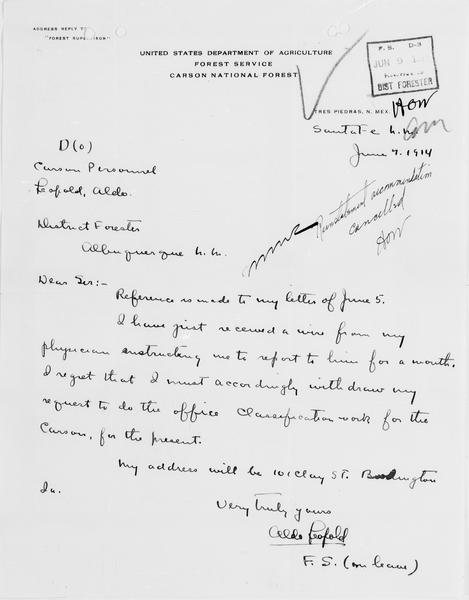 ADDRESS REPLY TO
"FOREST SUPERVISOR"
UNITED STATES DEPARTMENT OF AGRICULTURE
FOREST SERVICE
CARSON NATIONAL FOREST
F. S. D-3
JUN 9
DIST FORESTER
TRES PIEDRAS, N. MEX.
How
Santa Fe N.M.
June 7. 1914
D(o)
Carson Personnel
Leopold, Aldo.
Reinstatement recommendation
cancelled
How
District Forester
Albuquerque N.M.
Dear Sir:-
Reference is made to my letter of June 5.
I have just received a wire from my
physician instructing me to report to him for a month.
I regret that I must accordingly withdraw my
request to do the office Classification work for the
Carson, for the present.
My address will be 101 Clay St. Burlington
Ia.
Very truly yours
Aldo Leopold
F. S. (on leave)